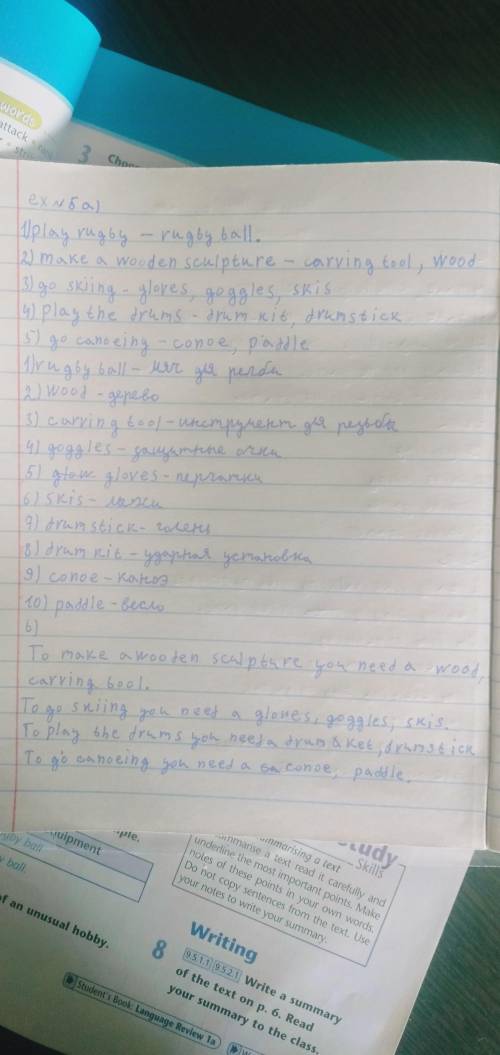 words
attack
3 Choo
ex №5 a)
1) play rugby – rugby ball.
2) make a wooden sculpture – carving tool, wood
3) go skiing – gloves, goggles, skis
4) play the drums – drum kit, drumstick
5) go canoeing – conoe, paddle
1) rugby ball – мяч для регби
2) wood – дерево
3) carving tool – инструмент для резьбы
4) goggles – защитные очки
5) gloves – перчатки
6) skis – лыжи
7) drumstick – голень
8) drum kit – ударная установка
9) conoe – каноэ
10) paddle – весло
b)
To make a wooden sculpture you need a wood,
carving tool.
To go skiing you need a gloves, goggles, skis.
To play the drums you need a drum ket, drumstick
To go canoeing you need a conoe, paddle.
quipment
ugby ball
y ball
of an unusual hobby.
Study
Skills
mmarising a text
mmarise a text read it carefully and
underline the most important points. Make
notes of these points in your own words.
Do not copy sentences from the text. Use
your notes to write your summary.
8
Writing
9.5.1.1 9.5.2.1 Write a summary
of the text on p. 6. Read
your summary to the class.
Student's Book: Language Review 1a